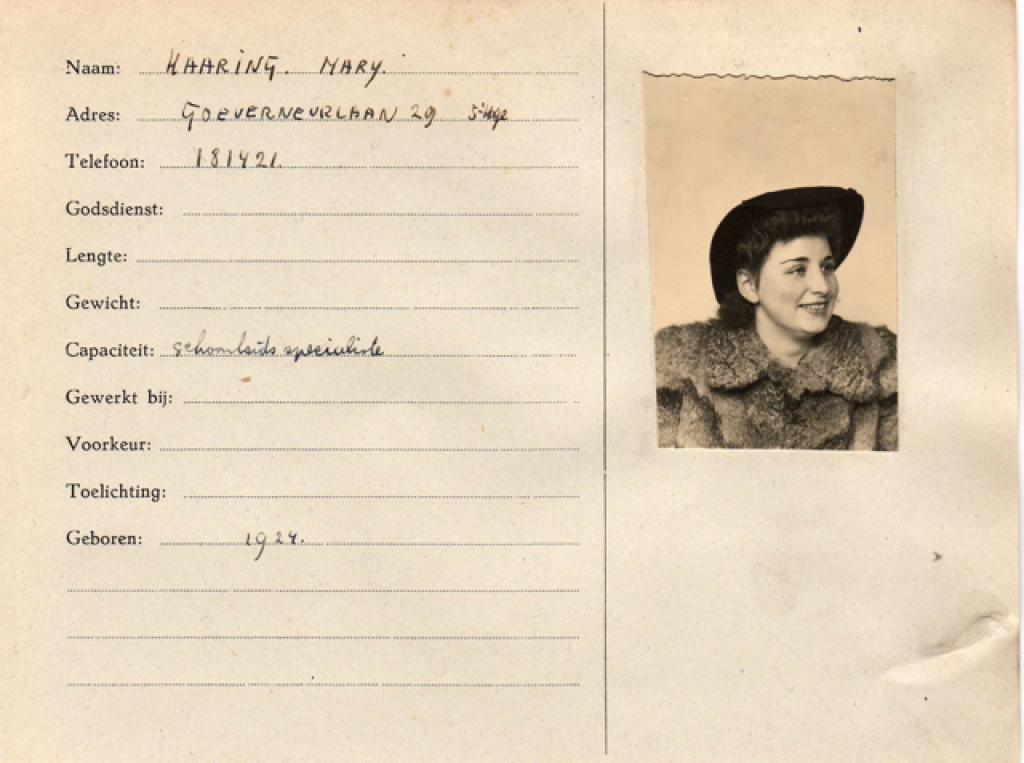 Naam: HAARING. MARY.
Adres: GOEVERNEURLAAN 29 S'Hge
Telefoon: 181421.
Godsdienst:
Lengte:
Gewicht:
Capaciteit: schoonheids specialiste
Gewerkt bij:
Voorkeur:
Toelichting:
Geboren: 1924.